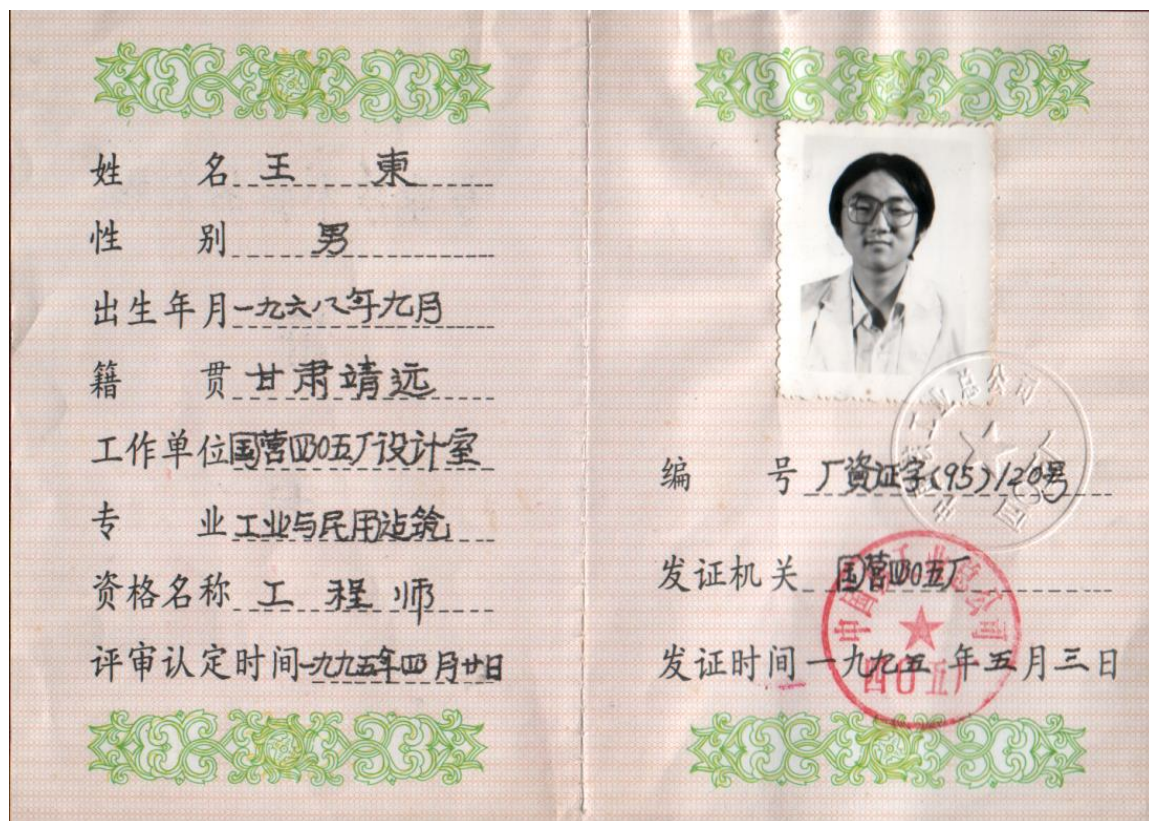 姓名 王東
性别 男
出生年月 一九六八年九月
籍贯 甘肃靖远
工作单位 国营四0五厂设计室
专业 工业与民用建筑
资格名称 工程师
评审认定时间 一九九五年四月廿日
编号 厂資证字(95)120号
发证机关 国营四0五厂
发证时间 一九九五年五月三日
中国核工业总公司
四0五厂
中国核工业总公司